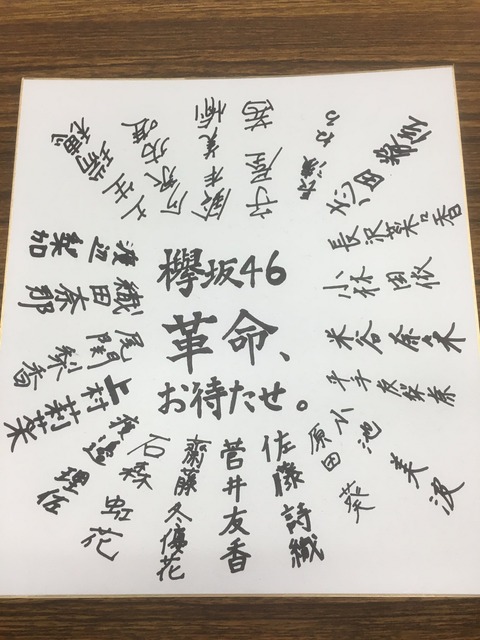 欅坂46
革命、
お待たせ。
守屋茜
長濱ねる
長沢菜々香
小林由依
米谷奈々未
平手友梨奈
小池美波
原田葵
佐藤詩織
菅井友香
齋藤冬優花
石森虹花
渡邉理佐
上村莉菜
尾関梨香
織田奈那
渡辺梨加
土生瑞穂
鈴本美愉